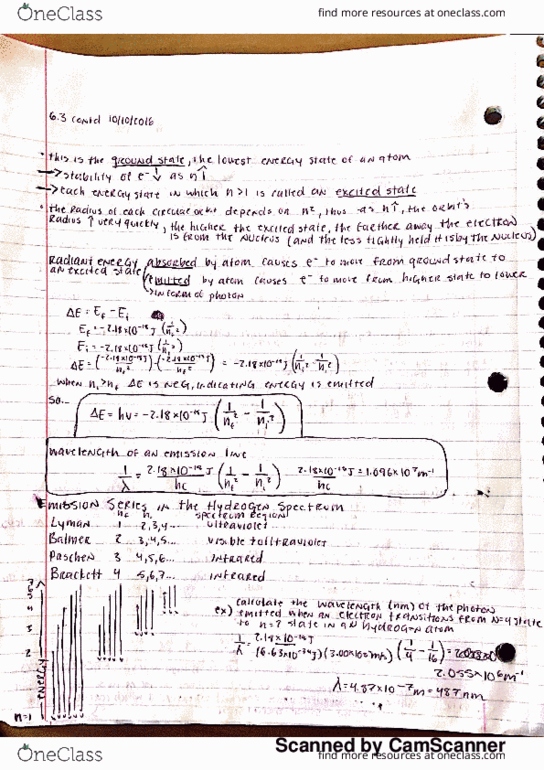 OneClass
find more resources at oneclass.com
6.3 contd 10/10/2016
• this is the ground state, the lowest energy state of an atom
→ stability of e⁻ ↓ as n↑
→ each energy state in which n>1 is called an excited state
• the radius of each circular orbit depends on n², thus as n↑, the orbit's
radius ↑ very quickly, the higher the excited state, the farther away the electron
is from the nucleus (and the less tightly held it is by the nucleus)
Radiant energy absorbed by atom causes e⁻ to move from ground state to
an excited state
emitted by atom causes e⁻ to move from higher state to lower
> in form of photon
ΔE = Ef - Ei
Ef = -2.18×10⁻¹⁸J (1/nf²)
Ei = -2.18×10⁻¹⁸J (1/ni²)
ΔE = (-2.18×10⁻¹⁸J/nf²) - (-2.18×10⁻¹⁸J/ni²) = -2.18×10⁻¹⁸J (1/nf² - 1/ni²)
when ni>nf ΔE is neg, indicating energy is emitted
so...
ΔE = hν = -2.18×10⁻¹⁸J (1/nf² - 1/ni²)
wavelength of an emission line
1/λ = 2.18×10⁻¹⁸J/hc (1/nf² - 1/ni²) 2.18×10⁻¹⁸J/hc = 1.096×10⁷m⁻¹
Emission Series in the Hydrogen Spectrum
nf ni spectrum region
Lyman 1 2,3,4... ultraviolet
Balmer 2 3,4,5... visible + ultraviolet
Paschen 3 4,5,6... infrared
Brackett 4 5,6,7... infrared
ex) calculate the wavelength (nm) of the photon
emitted when an electron transitions from n=4 state
to n=2 state in an hydrogen atom
1/λ = 2.18×10⁻¹⁸J/(6.63×10⁻³⁴J)(3.00×10⁸m/s) (1/4 - 1/16) =
2.055×10⁶m⁻¹
λ = 4.87×10⁻⁷m = 487nm
4
3
2
energy
n=1
Scanned by CamScanner
OneClass
find more resources at oneclass.com